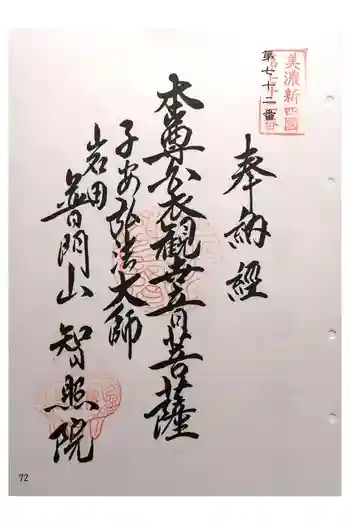 美濃新四國
第七十二番
奉納経
本尊白衣観世音菩薩
子安弘法大師
岩田
普門山
智照院
72